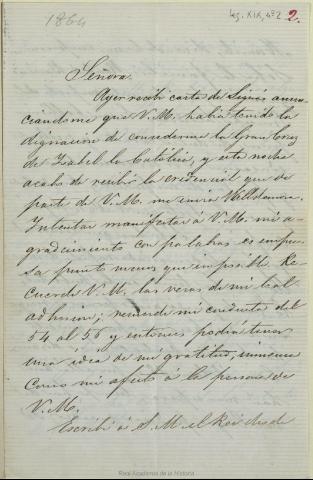 1864
leg. XIX, nº 2
2.
Señora
Ayer recibí carta de Sigués anun-
ciándome que V.M. había tenido la
dignación de concederme la Gran Cruz
de Isabel la Católica, y esta noche
acabo de recibir la credencial que de
parte de V.M. me envia
Intentar manifestar á V.M. mi a-
gradecimiento con palabras es empre-
sa punto menos que imposible. Re-
cuerde V.M. las veras de mi leal
adhesion; recuerde mi conducta del
54 al 56 y entonces podrá tener
una idea de mi gratitud, inmensa
como mi afecto á la persona de
V.M.
Escribí á S.M. el Rei desde
Real Academia de la Historia